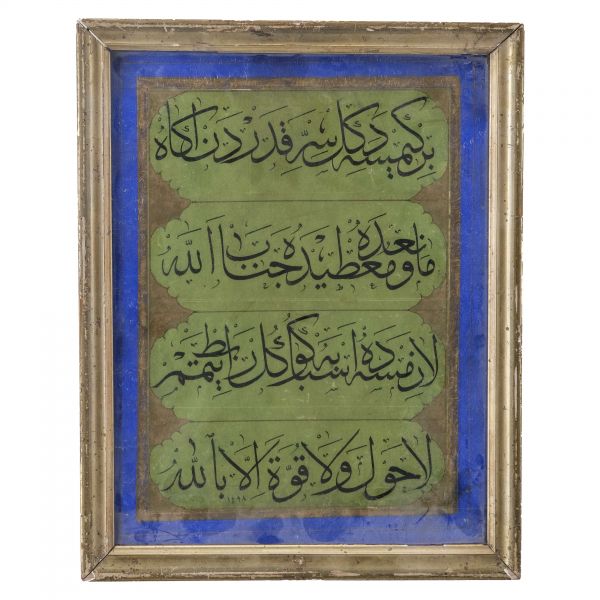 بر كیمسه دكل سرّ قدردن اكاه
مانعده و معطیده جناب الله
لازمسه ده اسبابه كوكل ربط ایتمم
لا حول ولا قوّة الا بالله